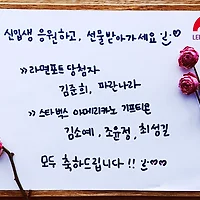 신입생 응원하고, 선물받아가세요
>> 라면포트 당첨자
김준희, 파란나라
>> 스타벅스 아메리카노 기프티콘
김소예, 조윤정, 최성길
모두 축하드립니다 !!